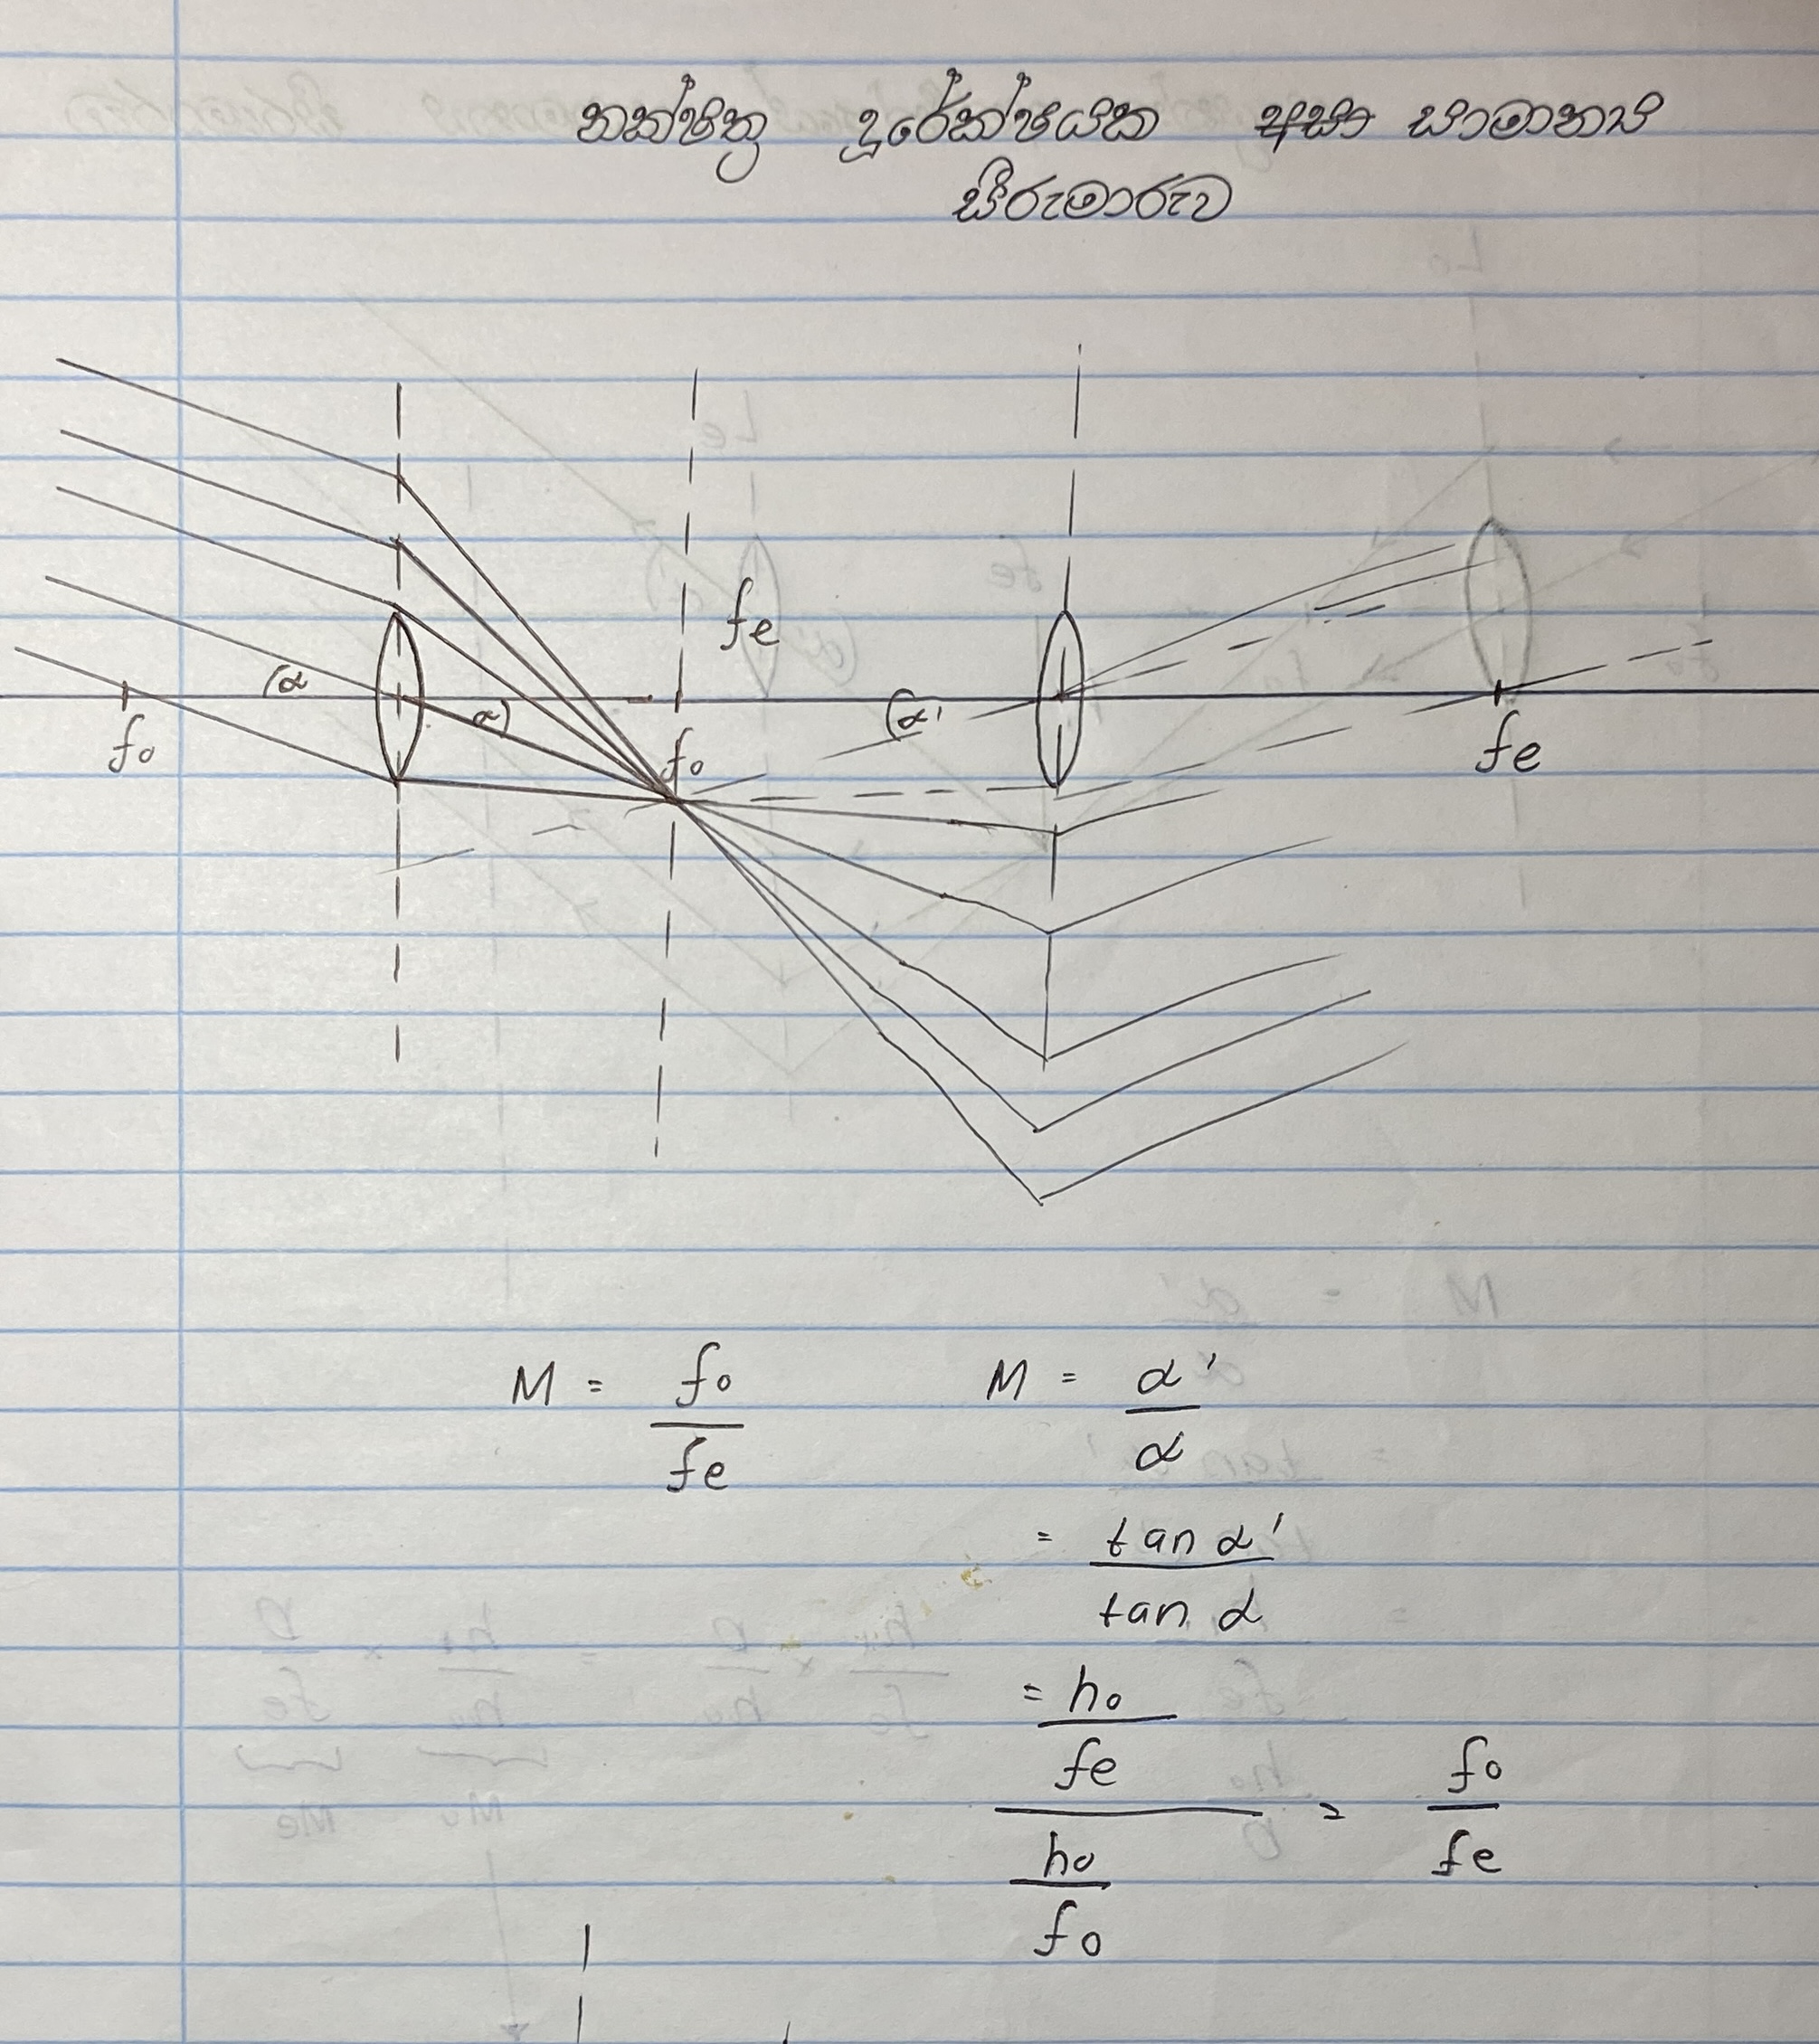 නක්ෂත්‍ර දූරේක්ෂයක අසා සාමාන්‍ය
සීරුමාරුව
fe
(α
α)
(α'
fo
fo
fe
M = fo / fe
M = α' / α
= tan α' / tan α
= ho / fe / ho / fo = fo / fe